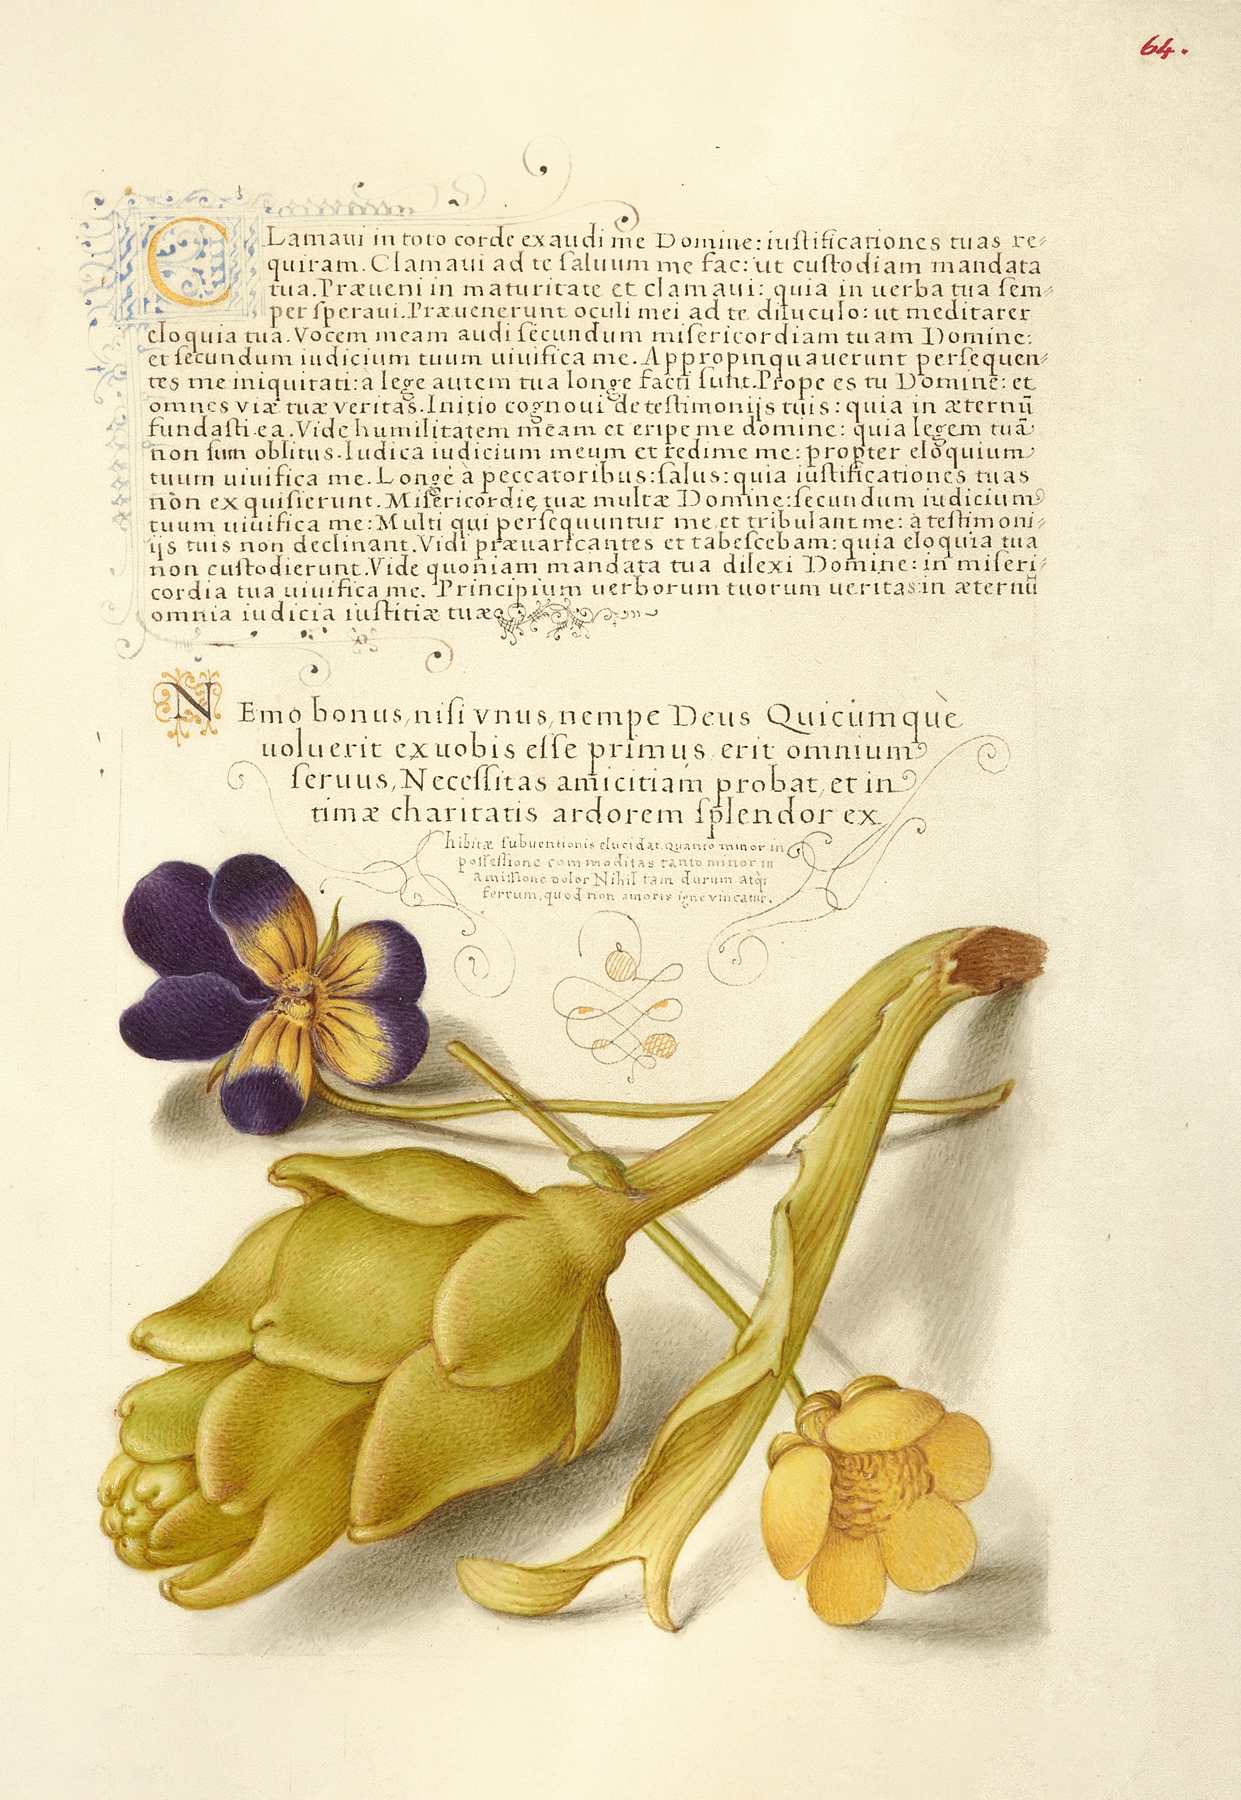 64.
CLamaui in toto corde exaudi me Domine: iustificationes tuas re⸗
quiram. Clamaui ad te saluum me fac: ut custodiam mandata
tua. Præueni in maturitate et clamaui: quia in uerba tua sem⸗
per speraui. Præuenerunt oculi mei ad te diluculo: ut meditarer
eloquia tua. Vocem meam audi secundum misericordiam tuam Domine:
et secundum iudicium tuum uiuifica me. Appropinquauerunt persequen⸗
tes me iniquitati: à lege autem tua longe facti sunt. Prope es tu Domine: et
omnes viæ tuæ veritas. Initio cognoui de testimonijs tuis: quia in æternũ
fundasti ea. Vide humilitatem meam et eripe me domine: quia legem tuã
non sum oblitus. Iudica iudicium meum et redime me: propter eloquium
tuum uiuifica me. Longè à peccatoribus: salus: quia iustificationes tuas
non exquisierunt. Misericordię tuæ multæ Domine: secundum iudicium
tuum uiuifica me: Multi qui persequuntur me et tribulant me: à testimoni⸗
ijs tuis non declinant. Vidi præuaricantes et tabescebam: quia eloquia tua
non custodierunt. Vide quoniam mandata tua dilexi Domine: in miseri⸗
cordia tua uiuifica me. Principium uerborum tuorum ueritas: in æternũ
omnia iudicia iustitiæ tuæ
NEmo bonus, nisi vnus, nempe Deus Quicumquè
uoluerit ex uobis esse primus erit omnium
seruus, Necessitas amicitiam probat, et in
timæ charitatis ardorem splendor ex
hibitæ subuentionis elucidat. quanto minor in
possessione commoditas tanto minor in
amissione dolor Nihil tam durum atq;
ferrum, quod non amoris igne vincatur.